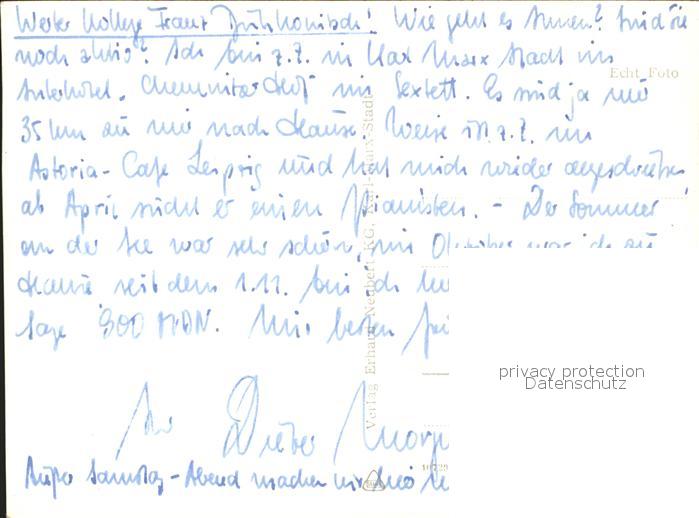 Werter Kollege Franz! Wie geht es Ihnen? Sind Sie
noch aktiv? Ich bin z.Z. in Karl Marx Stadt im
Echt Foto
Interhotel "Chemnitzer Hof" im Sextett. Es sind ja nur
35 km zu mir nach Hause. Weise ist z.Z. im
Astoria-Cafe Leipzig und hat mich wieder angeschrieben,
ab April sucht er einen Pianisten. - Der Sommer
an der See war sehr schön, im Oktober war ich zu
Hause seit dem 1.11. bin ich
Gage 900 MDN. Mit besten
Ihr Dieter
Außer Samstag-Abend machen wir hier
Verlag Erhard Neubert KG, Karl-Marx-Stadt
privacy protection
Datenschutz